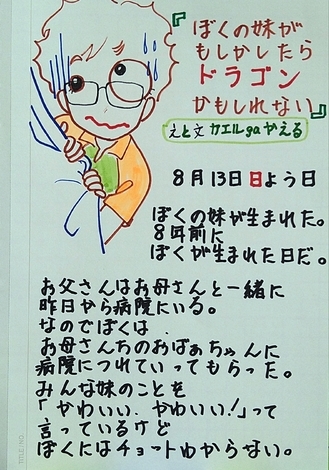 『ぼくの妹が
もしかしたら
ドラゴン
かもしれない』
えと文 カエルgaかえる
8月13日日よう日
ぼくの妹が生まれた。
8年前に
ぼくが生まれた日だ。
お父さんはお母さんと一緒に
昨日から病院にいる。
なのでぼくは、
お母さんちのおばぁちゃんに
病院につれていってもらった。
みんな妹のことを
「かわいい、かわいい!」って
言っているけど
ぼくにはチョットわからない。
TITLE/NO.